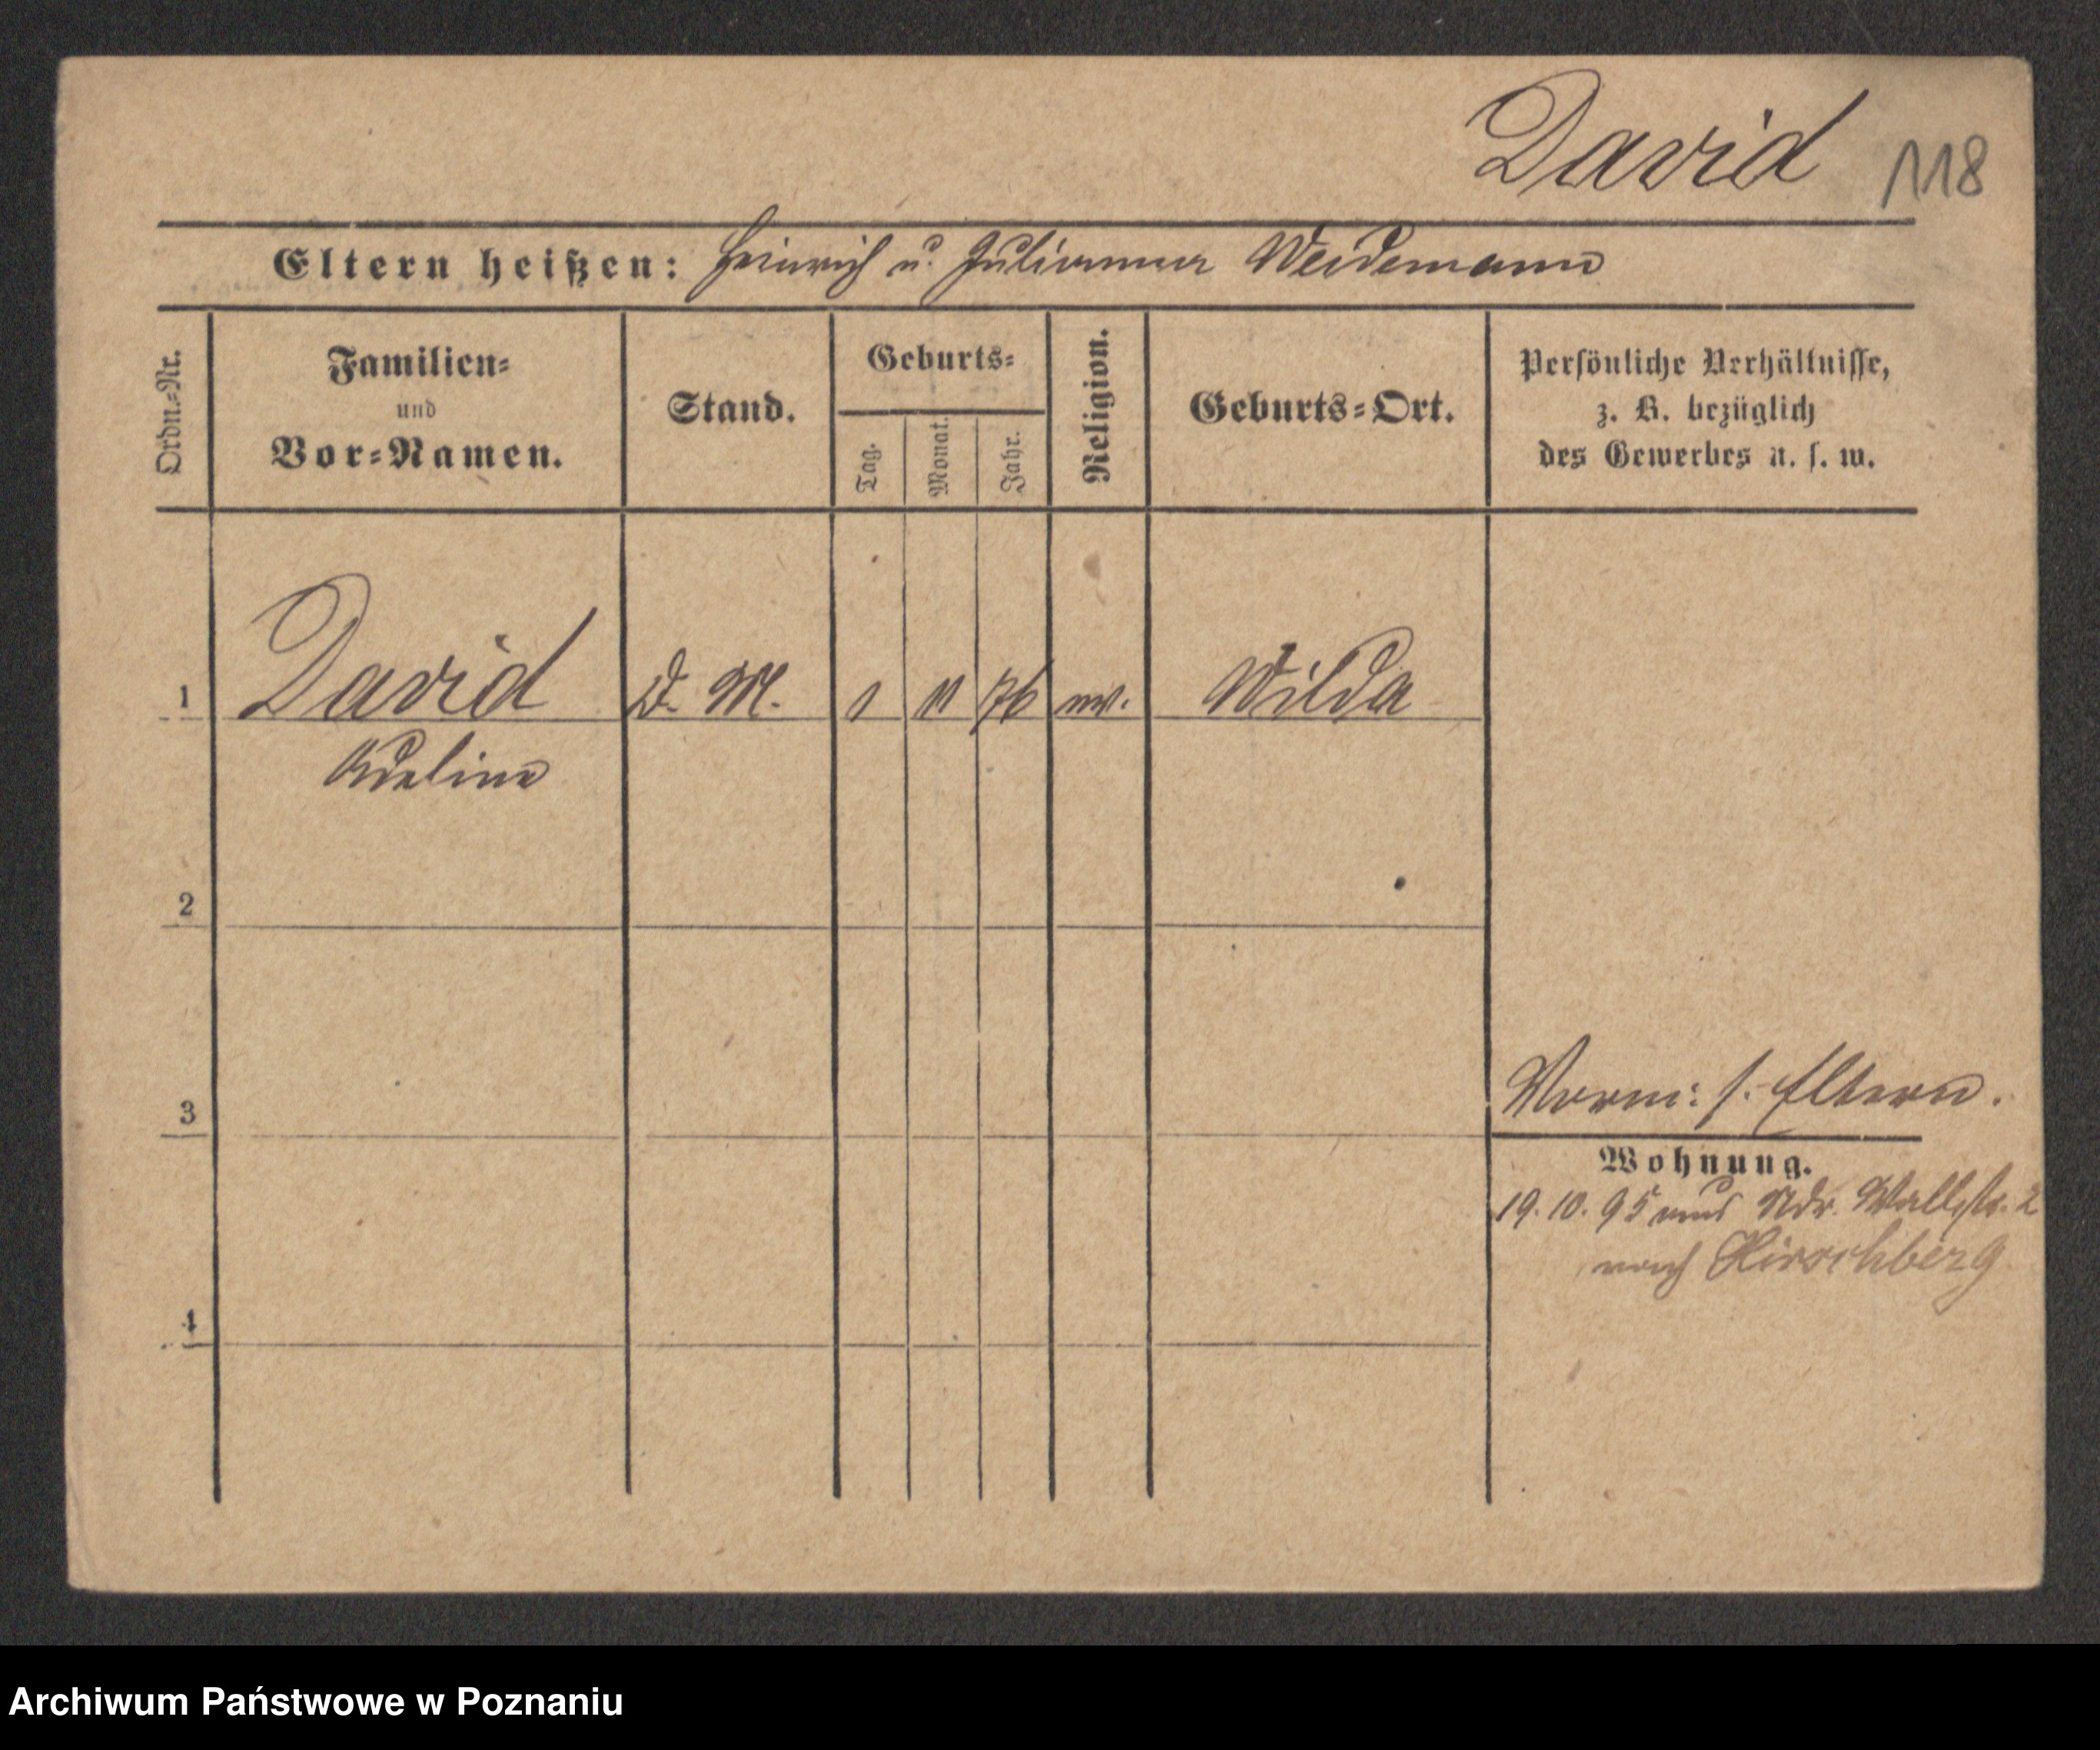 David 118
Eltern heißen: Heinrich u. Julianna Weidemann
Ordn.-Nr.
Familien-
und
Vor-Namen.
Stand.
Geburts-
Tag.
Monat.
Jahr.
Religion.
Geburts-Ort.
Persönliche Verhältnisse,
z. B. bezüglich
des Gewerbes u. s. w.
1 David D. M. 1 11 76 ev. Wilda
Adeline
2
3
Vorm: s. Eltern.
Wohnung.
19. 10. 95 aus Ndr. Wallstr. 2
nach Hirschberg
4
Archiwum Państwowe w Poznaniu